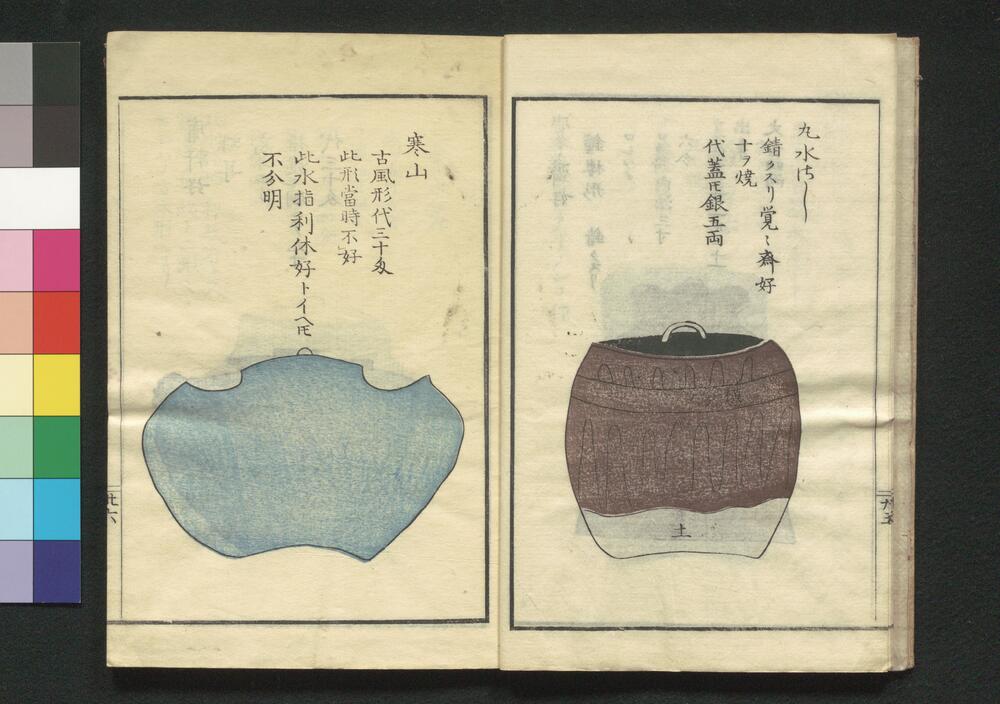 丸水さし
錆クスリ覚々斎好
十ヲ焼
代蓋トモ銀五両
土
廿五
寒山
古風形代三十匁
此形當時不好
此水指利休好トイヘトモ
不分明
廿六